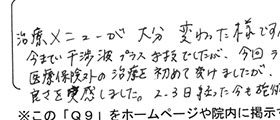 治療メニューが大分変わった様です
今まで干渉波プラス手技でしたが、今回ラ
医療保険外の治療を初めて受けましたが、
良さを実感しました。2.3日経った今も
※この「Q9」をホームページや院内に掲示